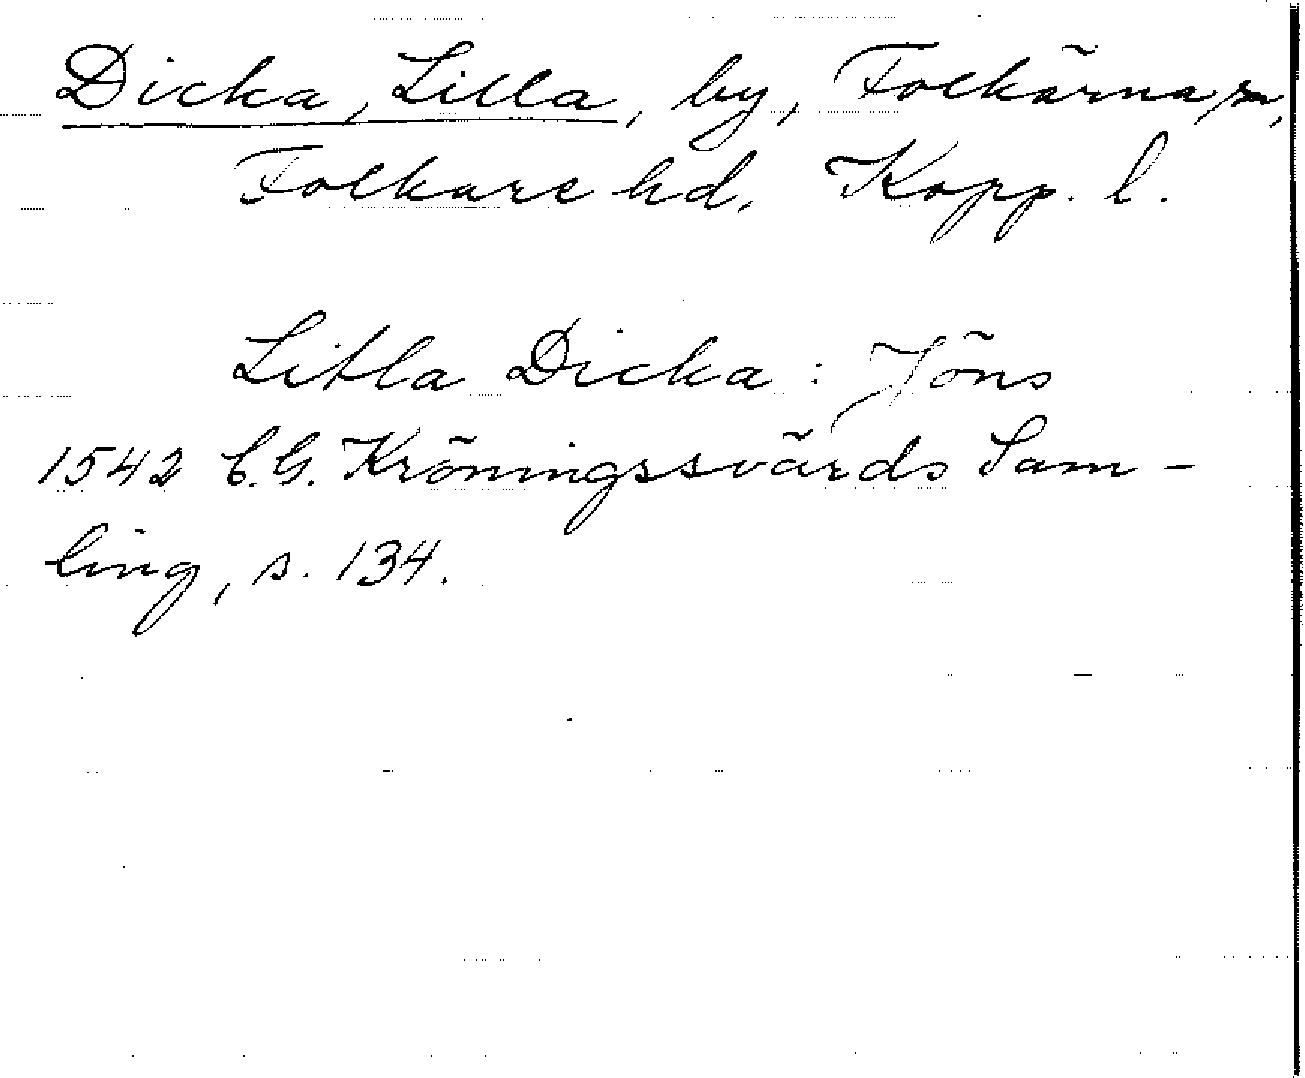 Dicka, Lilla, by, Folkärna sn,
Folkare hd. Kopp. l.
Litla Dicka : Jöns
1542 C.G. Kröningssvärds Sam-
ling, s. 134.